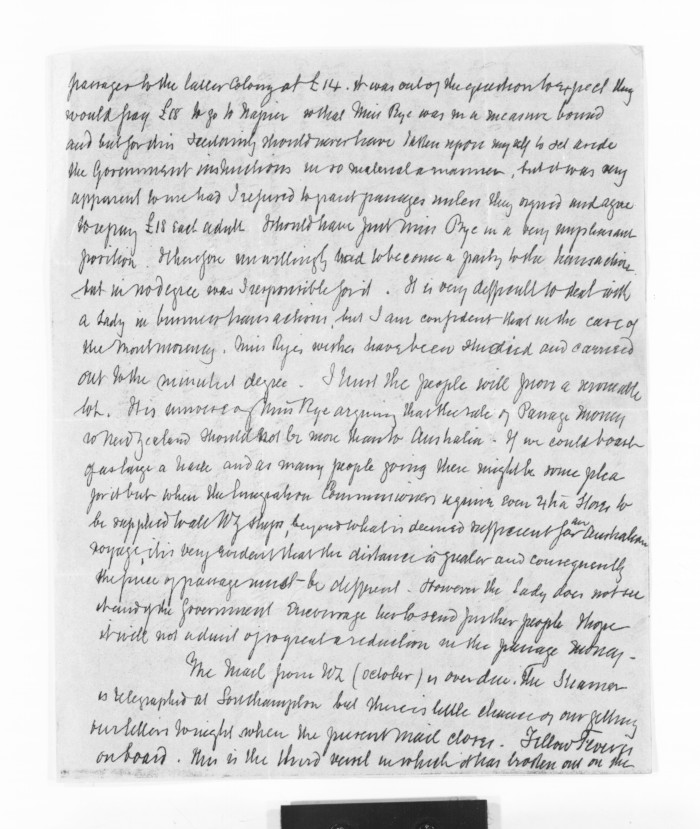 passages to the latter Colony at £14. It was out of the question to expect they
would pay £18 to go to Napier so that Miss Rye was in a measure bound
and but for this I certainly should never have taken upon myself to set aside
the Government instructions in so material a manner, but it was very
apparent to me had I refused to grant passages unless they signed and agree
to repay £18 each adult I should have put Miss Rye in a very unpleasant
position. I therefore unwillingly had to become a party to the transaction
but in no degree was I responsible for it. It is very difficult to deal with
a Lady in business transactions, but I am confident that in the case of
the Montmorency. Miss Ryes wishes have been studied and carried
out to the minutest degree. I trust the people will prove a serviceable
lot. It is of Miss Rye arguing that the rate of Passage Money
to New Zealand should not be more than to Australia. If we could boast
of as large a trade and as many people going there might be some plea
for it but when the Emigration Commissioners require even extra Stores to
be supplied to all NZ ships, beyond what is deemed sufficient for an Australian
voyage, it is very evident that the distance is greater and consequently
the price of passage must be different. However the Lady does not see
it and if the Government encourage her to send further people I hope
it will not admit of so great a reduction in the passage money.
The Mail from NZ (October) is over due. The Steamer
is telegraphed at Southampton but there is little chance of our getting
our letters tonight when the present mail closes. Yellow Fever is
on board. This is the third vessel in which it has broken out on the